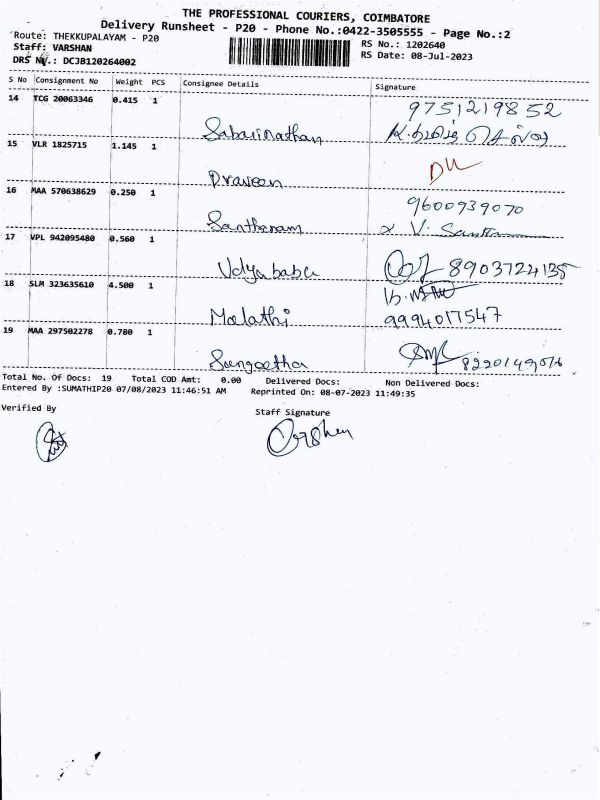 THE PROFESSIONAL COURIERS, COIMBATORE
Delivery Runsheet - P20 - Phone No.:0422-3505555 - Page No.:2
Route: THEKKUPALAYAM - P20
RS No.: 1202640
Staff: VARSHAN
RS Date: 08-Jul-2023
DRS No.: DCJB120264002
S No Consignment No Weight PCS Consignee Details Signature
14 TCG 20063346 0.415 1
9751219852
Sabarinathan
15 VLR 1825715 1.145 1
Praveen
16 MAA 570638629 0.250 1
9600939070
Santhanam
17 VPL 942095480 0.560 1
Vidya baba 8903724135
18 SLM 323635610 4.500 1
Malathi 9994017547
19 MAA 297502278 0.780 1
Sangeetha
Total No. Of Docs: 19 Total COD Amt: 0.00 Delivered Docs: Non Delivered Docs:
Entered By :SUMATHIP20 07/08/2023 11:46:51 AM Reprinted On: 08-07-2023 11:49:35
Verified By Staff Signature